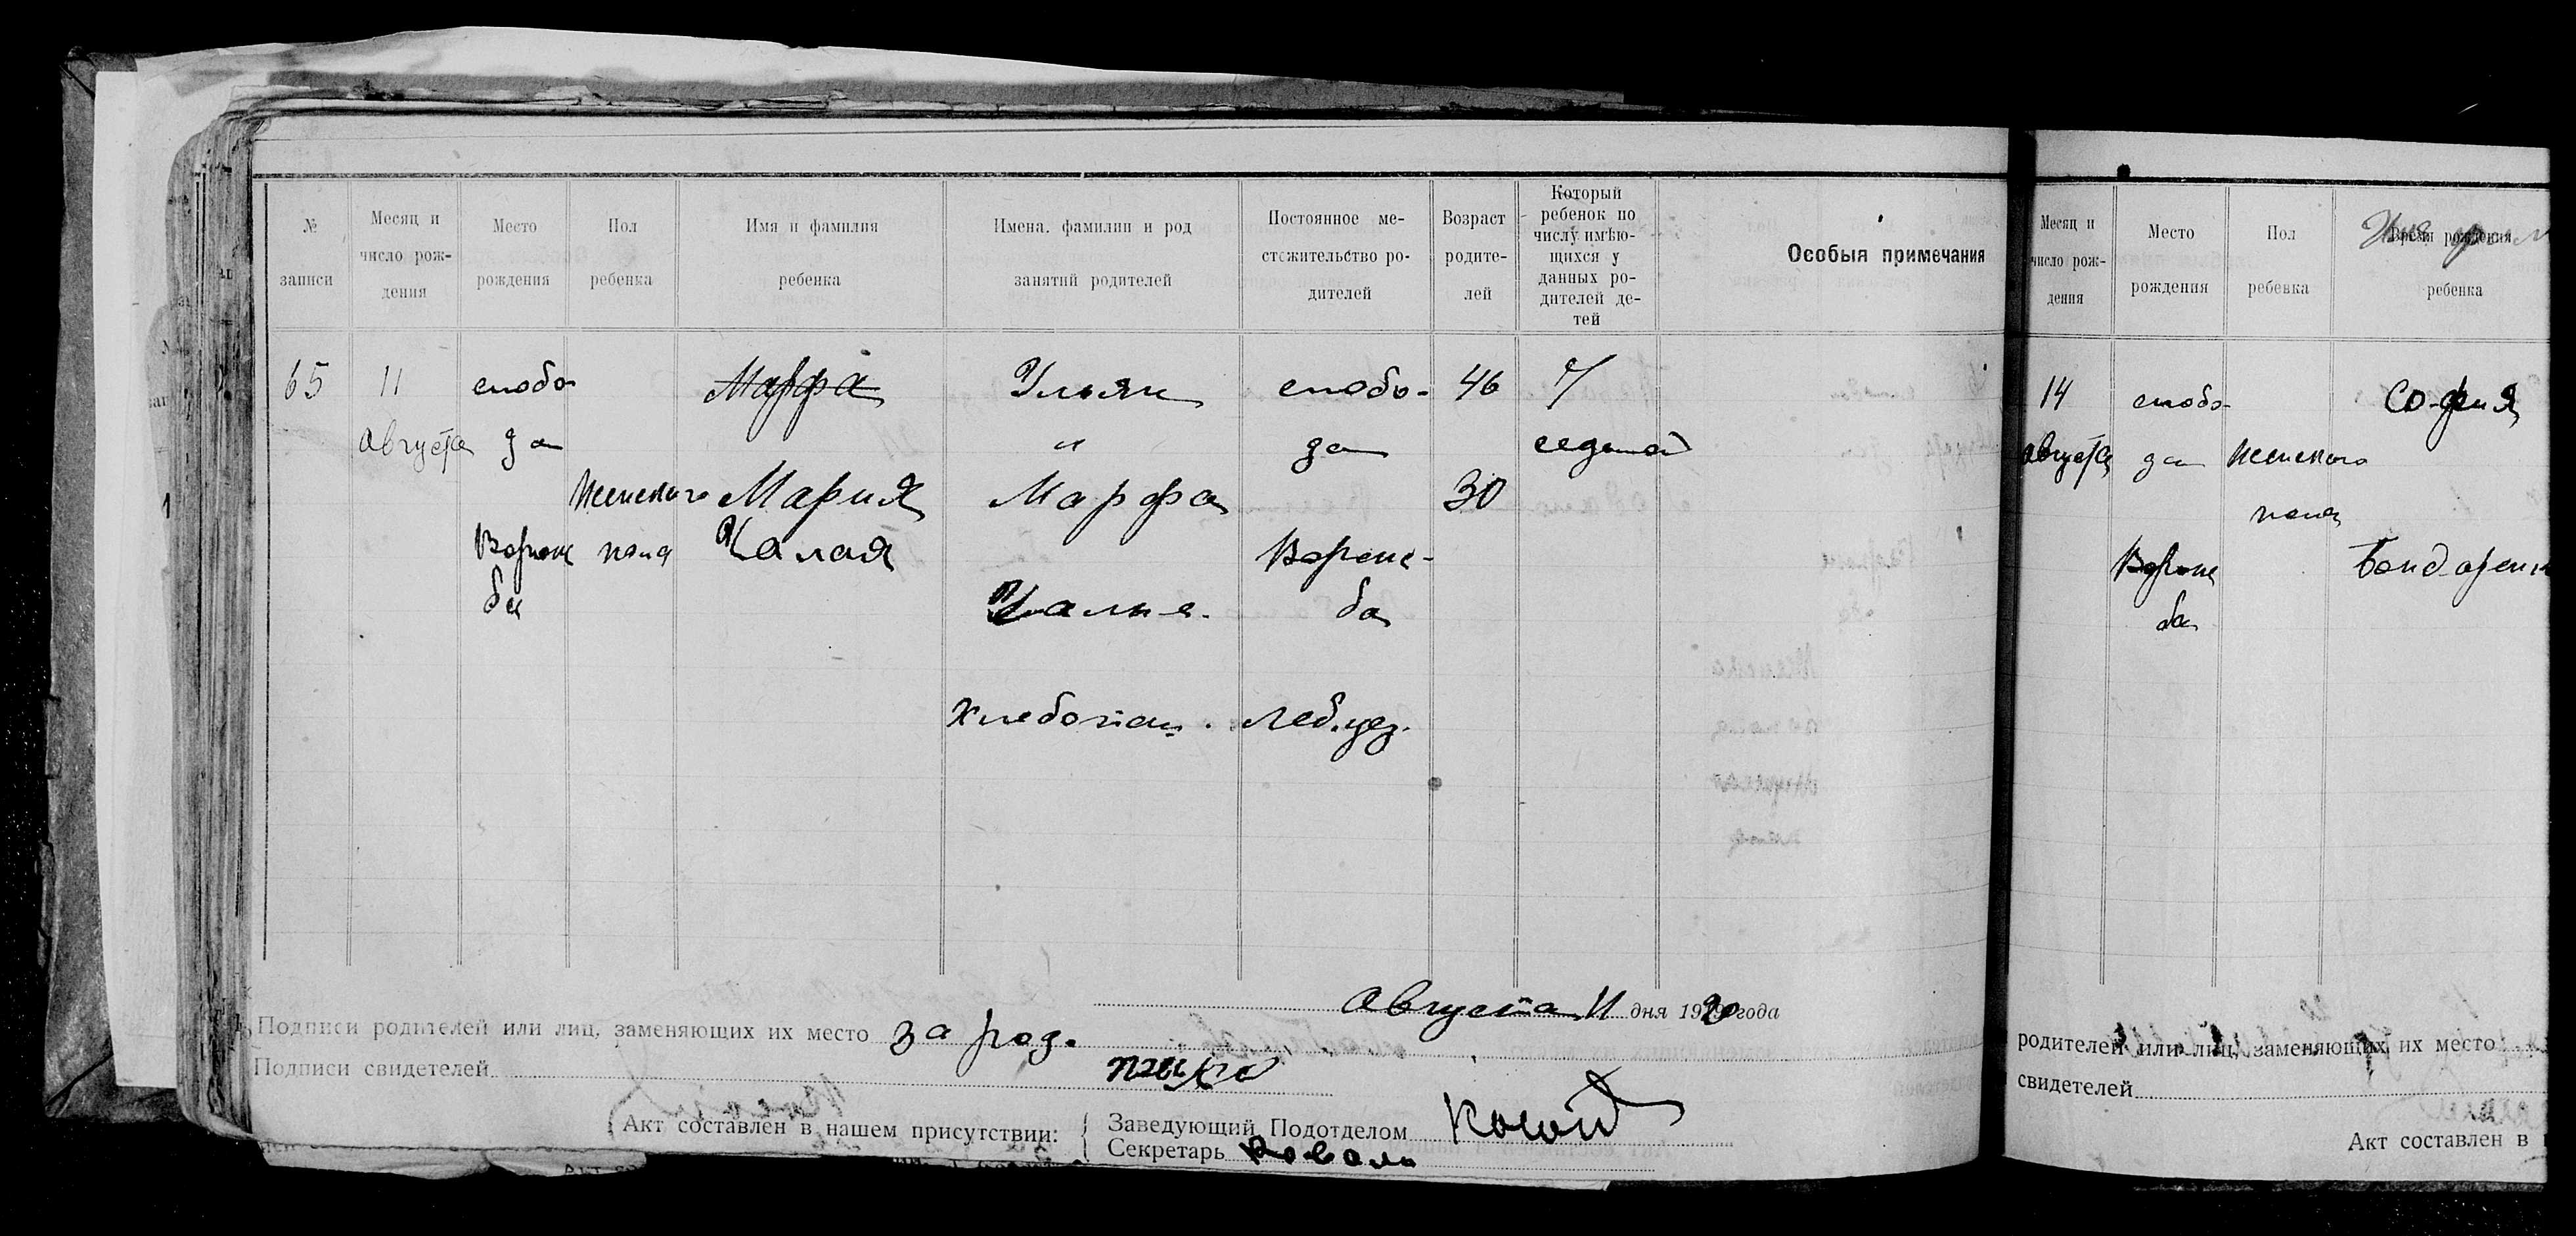 № записи
Месяц и число рождения
Место рождения
Пол ребенка
Имя и фамилия ребенка
Имена, фамилии и род занятий родителей
Постоянное местожительство родителей
Возраст родителей
Который ребенок по числу имѣющихся у данных родителей детей
Особыя примечания
65
11
августа
слобо
да
Вороне
ба
женского
пола
Марфа
Мария
Чалая
Ульян
и
Марфа
Чалые.
хлебопаш.
слобо-
да
Вороне-
ба
Леб. уез.
46
30
7
седьмой
Августа 11 дня 1920 года
Подписи родителей или лиц, заменяющих их место за род.
Подписи свидетелей
Акт составлен в нашем присутствии:
Заведующий Подотделом
Секретарь Коваль
Месяц и число рождения
Место рождения
Пол ребенка
Время рождения ребенка
14
августа
слобо-
да
Вороне
ба
женского
пола
София
Бондаренк
родителей или лиц, заменяющих их место
свидетелей
Акт составлен в